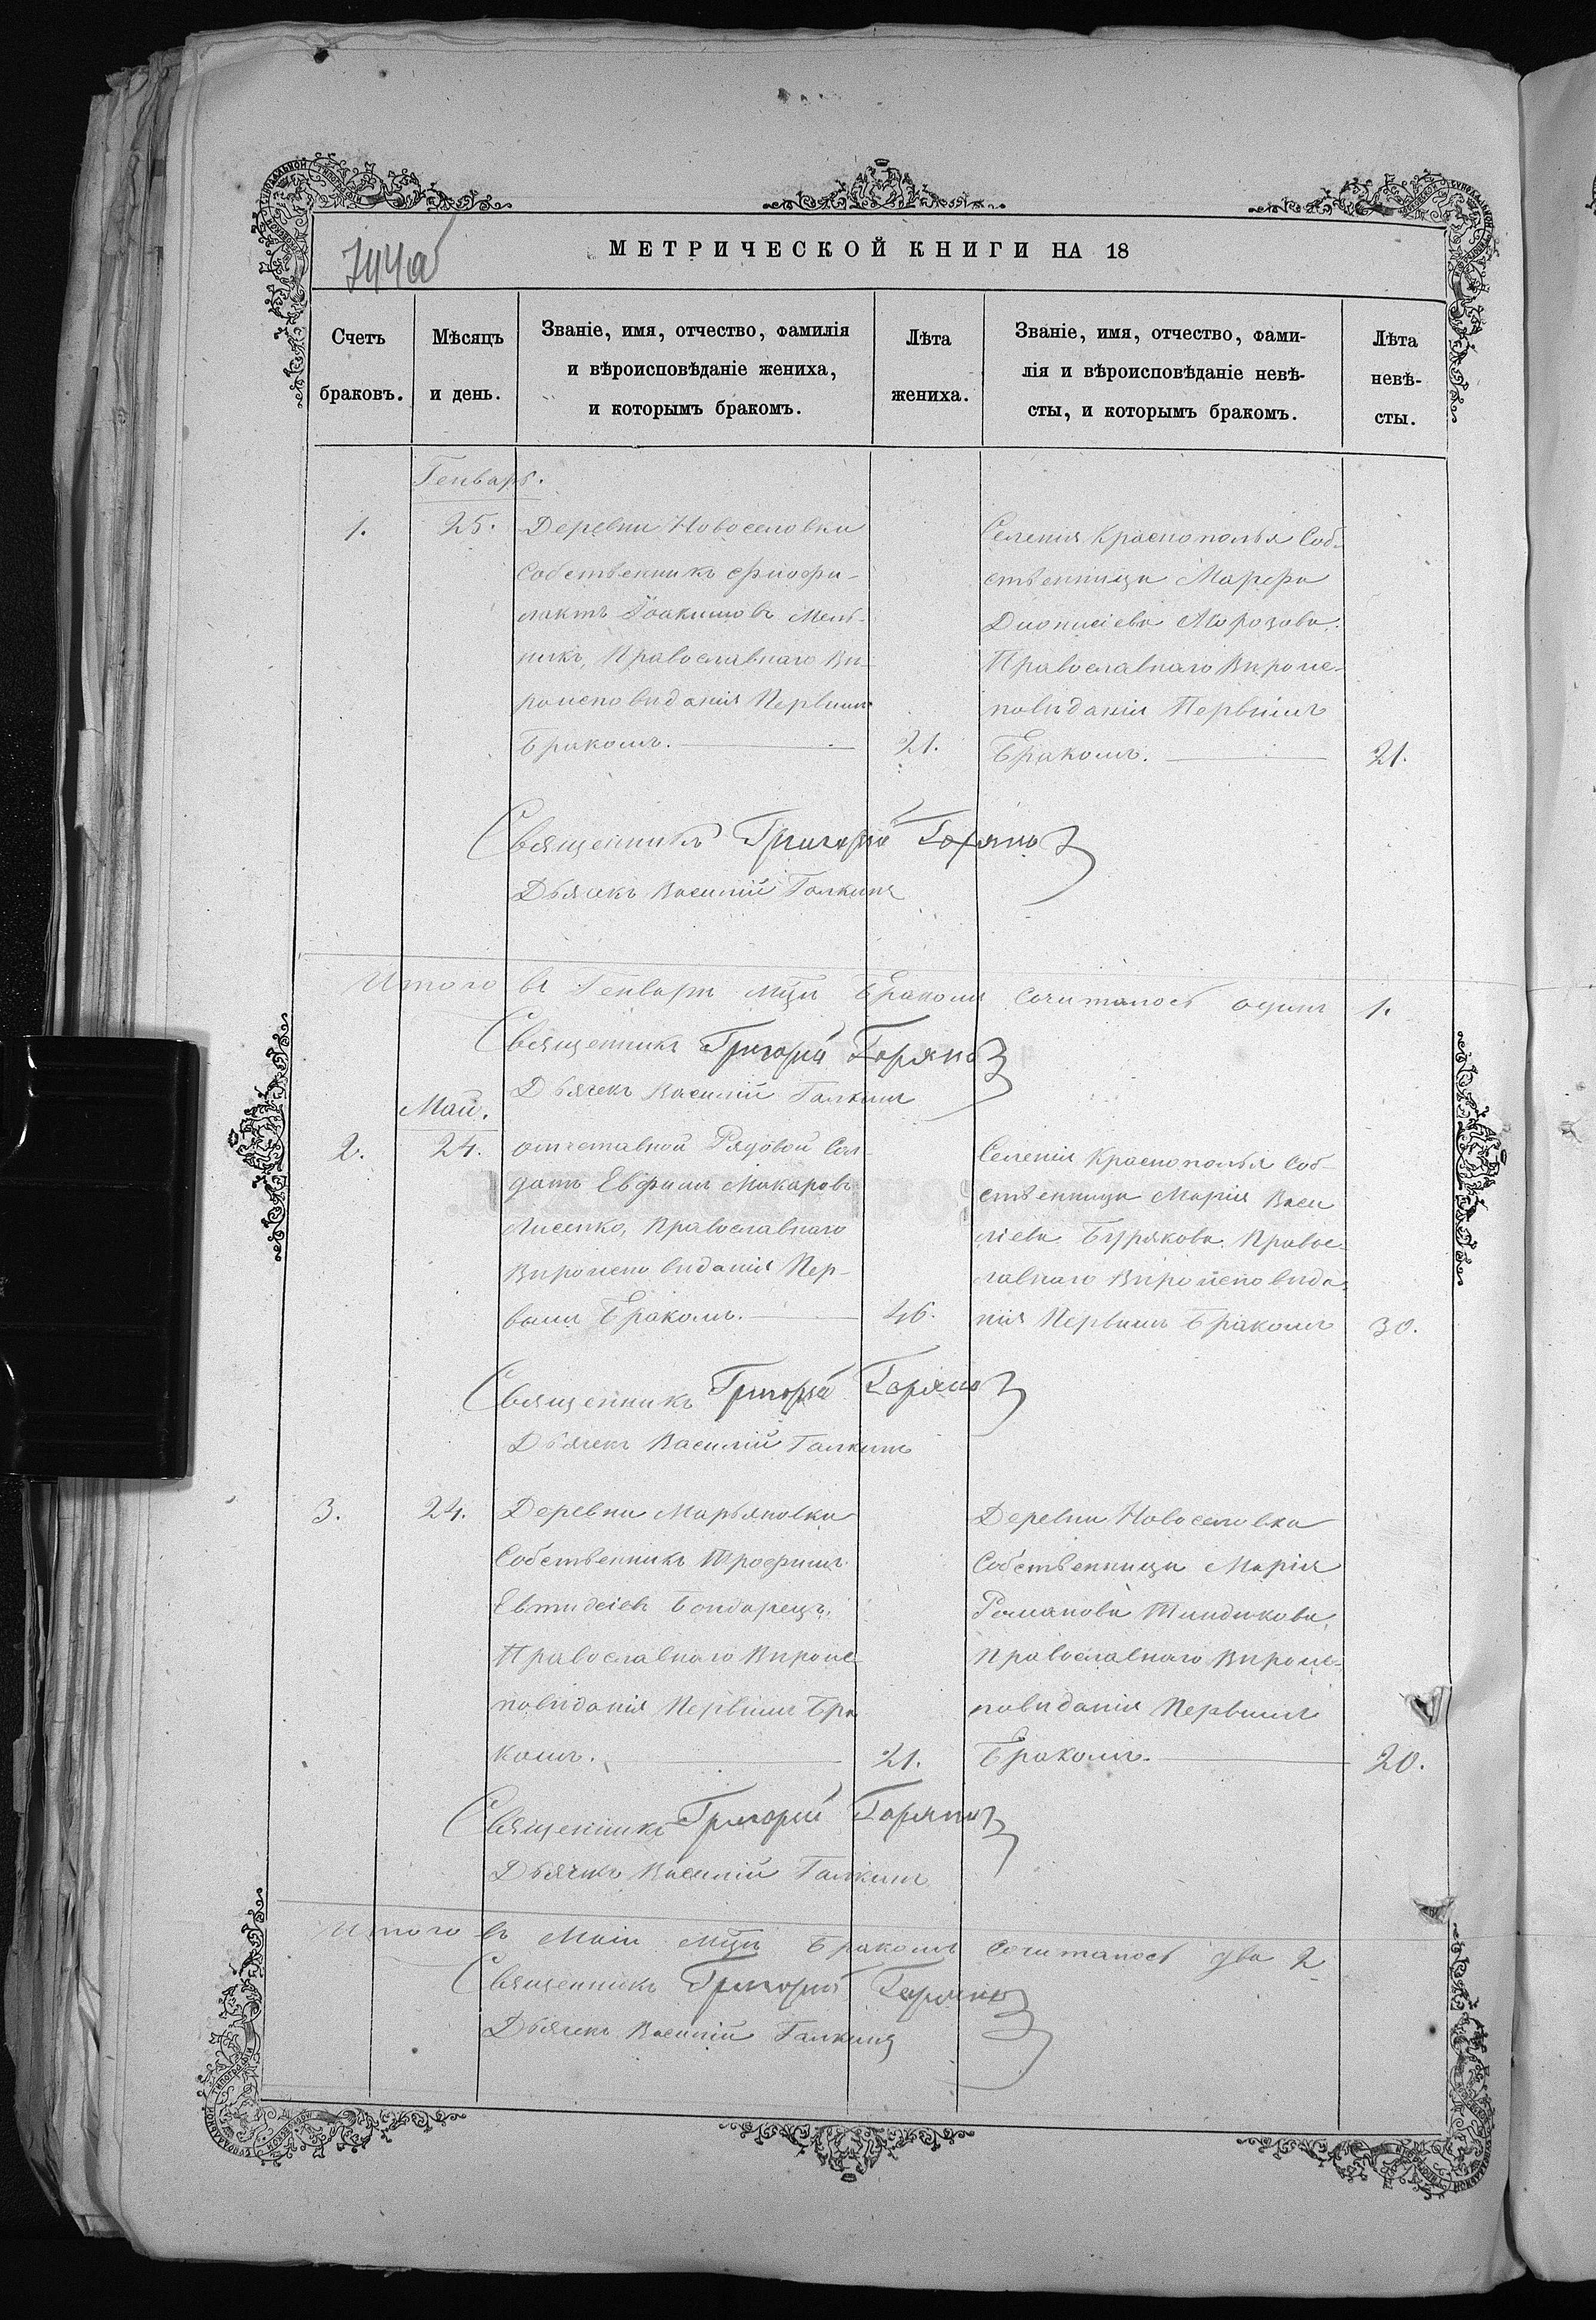 744об
МЕТРИЧЕСКОЙ КНИГИ НА 18
Счетъ браковъ.
Мѣсяцъ и день.
Званіе, имя, отчество, фамилія
и вѣроисповѣданіе жениха,
и которымъ бракомъ.
Лѣта жениха.
Званіе, имя, отчество, фами-
лія и вѣроисповѣданіе невѣ-
сты, и которымъ бракомъ.
Лѣта невѣ-сты.
Генварь.
1.
25.
Деревни Новоселовки
Собственникъ Фиофи-
лактъ Іоакимовъ Мель-
никъ, Православнаго Вѣ-
роисповѣданія Первымъ
Бракомъ.
21.
Селенія Краснополья Соб-
ственница Марфа
Дионисіева Морозова.
Православнаго Вѣроис-
повѣданія Первымъ
Бракомъ.
21.
Священникъ Григорій Горяно
Дьячекъ Василій Галкинъ
Итого въ Генварѣ мцѣ Бракомъ сочиталось одинъ 1.
Священникъ Григорій Горяно
Дьячекъ Василій Галкинъ
Май.
2.
24.
отставной Рядовой Сол-
датъ Евфимъ Макаровъ
Лисенко, Православнаго
Вѣроисповѣданія Пер-
вымъ Бракомъ.
46.
Селенія Краснополья Соб-
ственница Марія Васи
ліева Бурякова. Правос-
лавнаго Вѣроисповѣда-
нія Первымъ Бракомъ
30.
Священникъ Григорій Горяно
Дьячекъ Василій Галкинъ
3.
24.
Деревни Марьяновки
Собственникъ Трофимъ
Бондарецъ.
Православнаго Вѣроис-
повѣданія Первымъ Бра
комъ.
21.
Деревни Новоселовки
Собственница Марія
Романова Тиндикова,
Православнаго Вѣроис-
повѣданія Первымъ
Бракомъ.
20.
Священникъ Григорій Горяно
Дьячекъ Василій Галкинъ
Итого въ Маіи мцѣ Бракомъ сочиталось два 2
Священникъ Григорій Горяно
Дьячекъ Василій Галкинъ